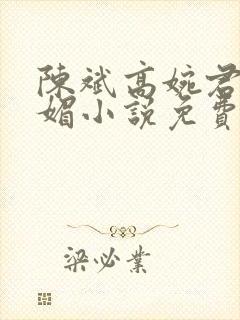 陳斌高婉君
媚小說免費
梁必業